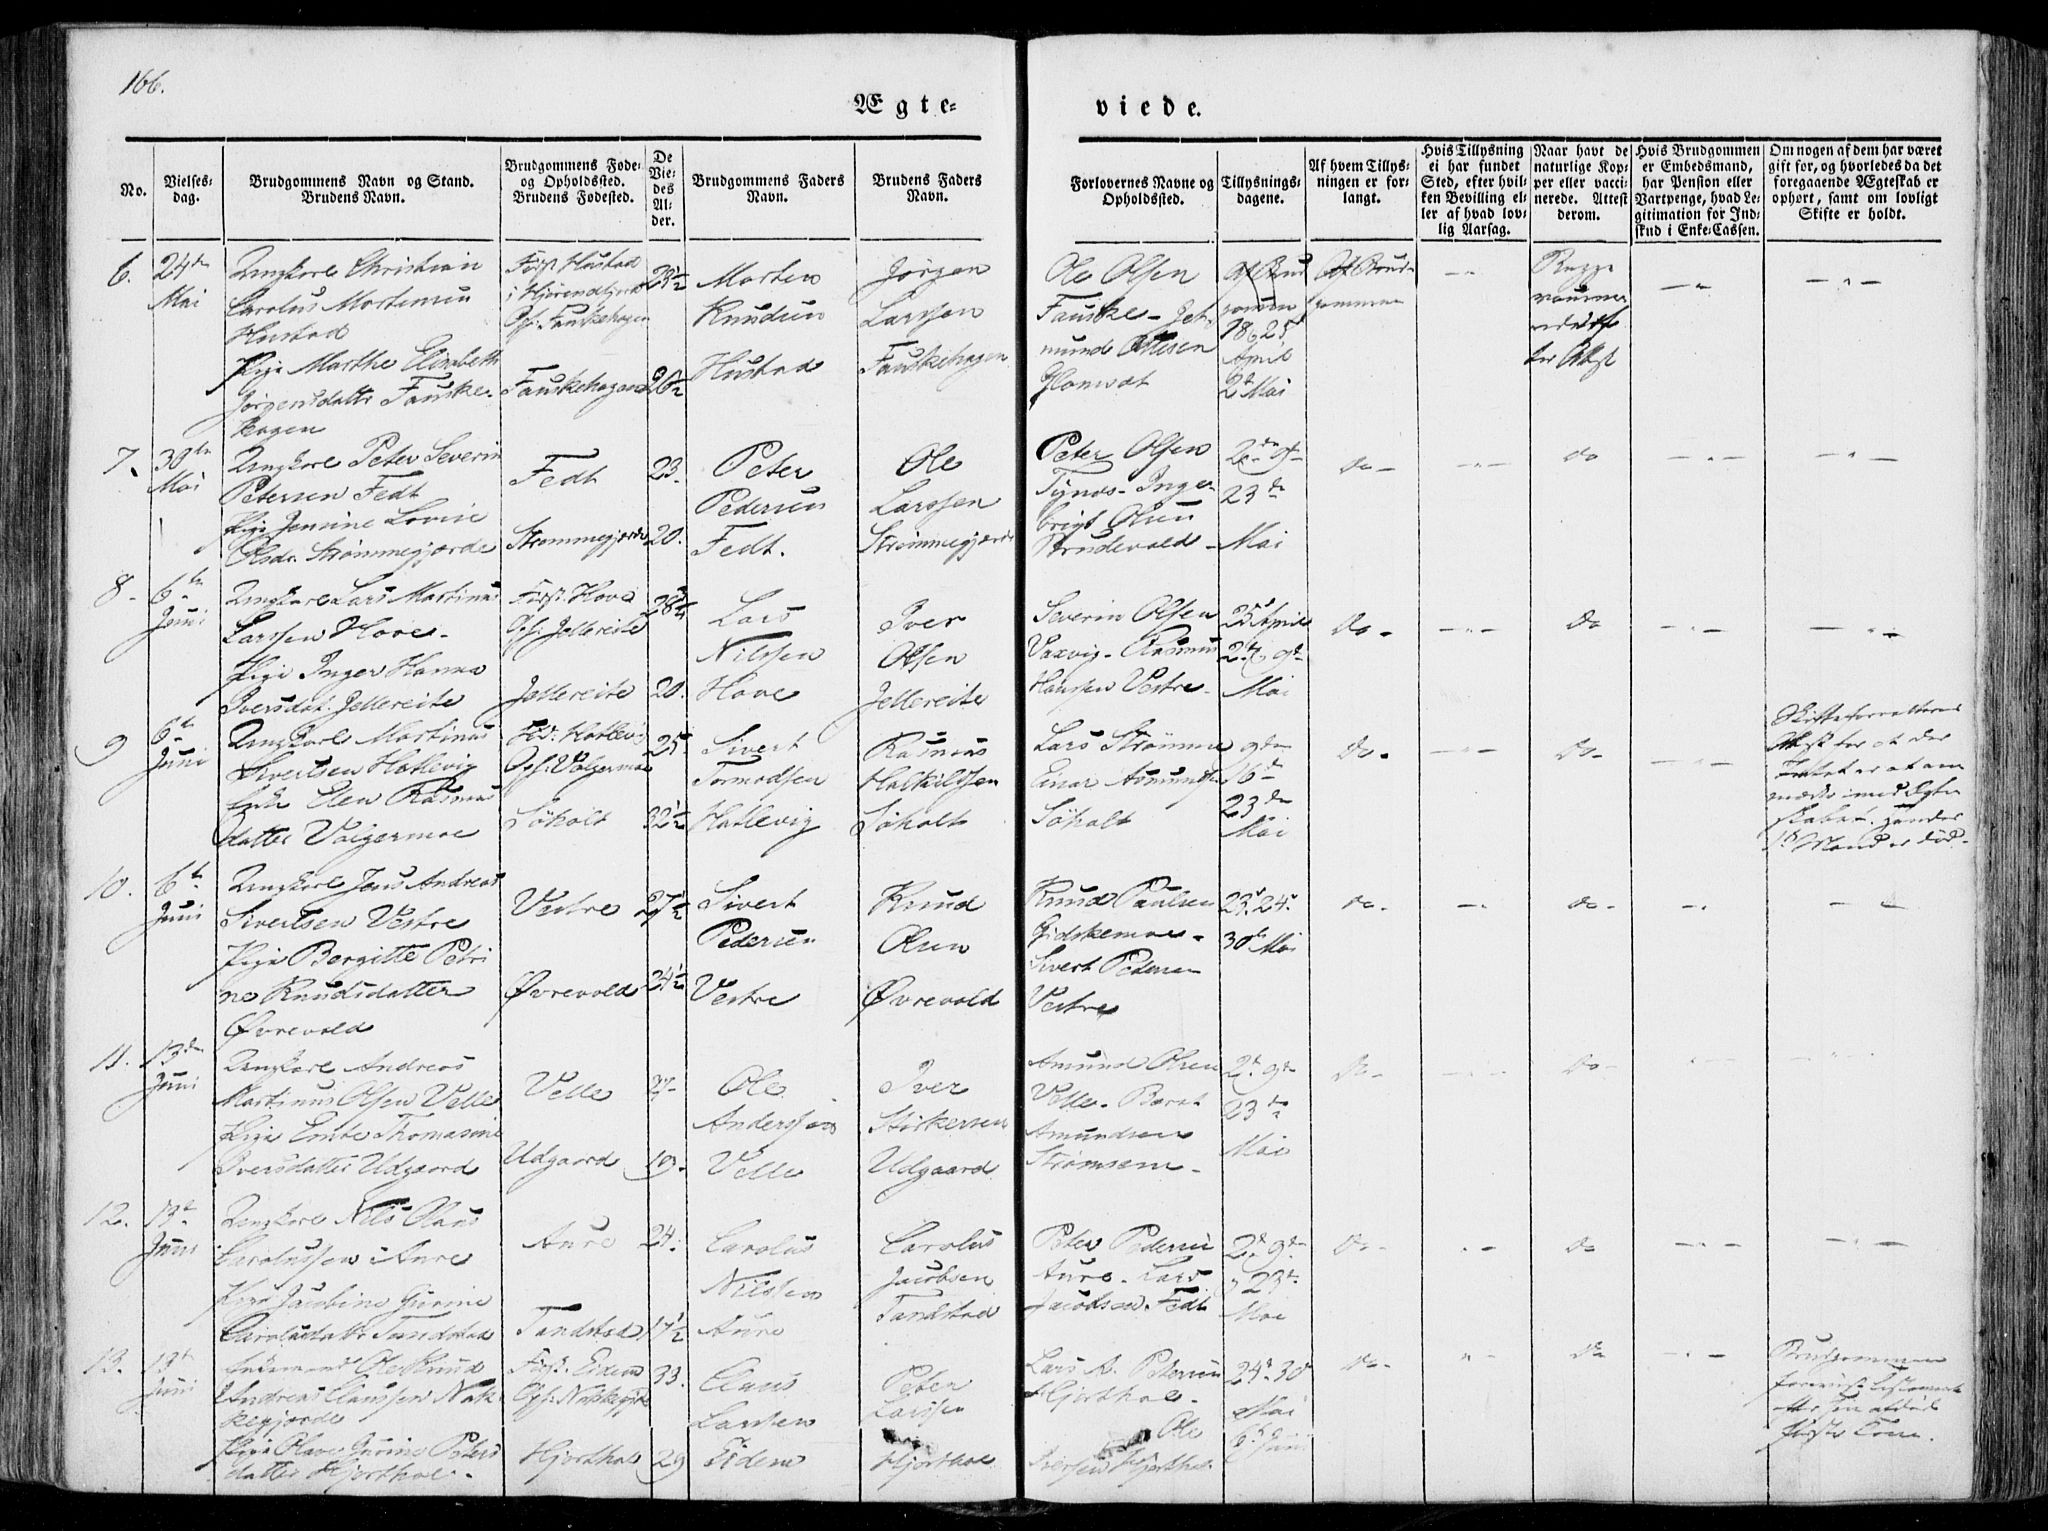 166.
Ægte-
viede.
No.
Vielses-
dag.
Brudgommens Navn og Stand.
Brudens Navn.
Brudgommens Føde-
og Opholdssted.
Brudens Fødested.
De
Vie-
des
Al-
der.
Brudgommens Faders
Navn.
Brudens Faders
Navn.
Forlovernes Navne og
Opholdssted.
Tillysnings-
dagene.
Af hvem Tillys-
ningen er for-
langt.
Hvis Tillysning
ei har fundet
Sted, efter hvil-
ken Bevilling el-
ler af hvad lov-
lig Aarsag.
Naar havt de
naturlige Kop-
per eller vacci-
nerede. Attest
derom.
Hvis Brudgommen
er Embedsmand,
har Pension eller
Vartpenge, hvad Le-
gitimation for Ind-
skud i Enke-Cassen.
Om nogen af dem har været
gift før, og hvorledes da det
foregaaende Ægteskab er
ophørt, samt om lovligt
Skifte er holdt.
6.
24de
Mai
Ungkarl Christian
Carolus Mortensen
Hustad
Pige Marthe Elisabeth
Jørgensdatter Fauske-
hagen
Hustad
Fauskehagen
Fauskehagen
28½
26½
Morten
Knudsen
Hustad
Jørgen
Larssen
Fauskehagen
Ole Olsen
Fauske
Glomset
18 25
April
2d Mai
Af Brud-
gommen
7.
30te
Mai
Ungkarl Peter Severin
Petersen Fedt
Pige Jensine Lovise
Olsdr. Strømmegjerde
Fedt
Strømmegjerde
23.
20.
Peter
Pedersen
Fedt.
Ole
Larssen
Strømmegjerde
Peter Olsen
Tynes - Inge-
brigt Olsen
Brudevold -
2den 9de
23de
Mai
do
do
8
6te
Juni
Ungkarl Lars Martinus
Larssen Hove
Pige Inger Hanna
Iversdat. Jellereite
Hove
Jellereite
Jellereite
20.
Lars
Nilssen
Hove
Iver
Olsen
Jellereite
Severin Olsen
Vaxvig - Rasmus
Hanssen Vestre
25 April
2d 9de
Mai
do
do
9
6te
Juni
Ungkarl Martinus
Sivertsen Hatlevig
Enke Elen Rasmus
datter Valgermoe
Hatlevig
Valgermoe
Søholt
25
32½
Sivert
Tormodsen
Hatlevig
Rasmus
Søholt
Lars Strømme
Einar
Søholt
9de
16de
23de
Mai
do
do
Mand er død
10.
6te
Juni
Ungkarl Jens Andreas
Sivertsen Vestre
Pige Bergitte Petri
ne Knudsdatter
Øvrevold
Vestre
Øvrevold
27½
24½
Sivert
Pedersen
Vestre
Knud
Olsen
Øvrevold
Knud Paulsen
Gidskemoe -
Sivert Pedersen
Vestre
23. 24.
30te Mai
do
do
11.
13de
Juni
Ungkarl Andreas
Martinus Olsen Velle
Pige Emte Thomasine
Iversdatter Udgaard
Velle
Udgaard
27
19.
Ole
Anderssen
Velle
Iver
Udgaard
Amund Olsen
Velle - Bernt
Amundsen
Strømsem
2de 9de
23de
Mai
do
do
12.
13de
Juni
Ungkarl Nils Olaus
Carolussen Aure
Pige Jacobine Gurine
Carolusdatr. Tandstad
Aure
Tandstad
24.
17½
Carolus
Nilssen
Aure
Carolus
Jacobsen
Tandstad
Peter Pedersen
Aure - Lars
Jacobsen Fedt
2de 9de
23de
Mai
do
do
13.
13de
Juni
Ole Knud
Andreas Claussen Nak-
kegjerde
Pige Olave Gurine Peters
datter Hjorthol.
Eidem
Nakkegjerde
Hjorthol
33.
29
Claus
Larssen
Eidem
Peter
Larssen
Hjorthol
Lars A. Petersen
Hjorthol -
Ole
Iversen Hjorthol
24de 30te
Mai
6te Juni
do
do
Brudgommen
første Kone.